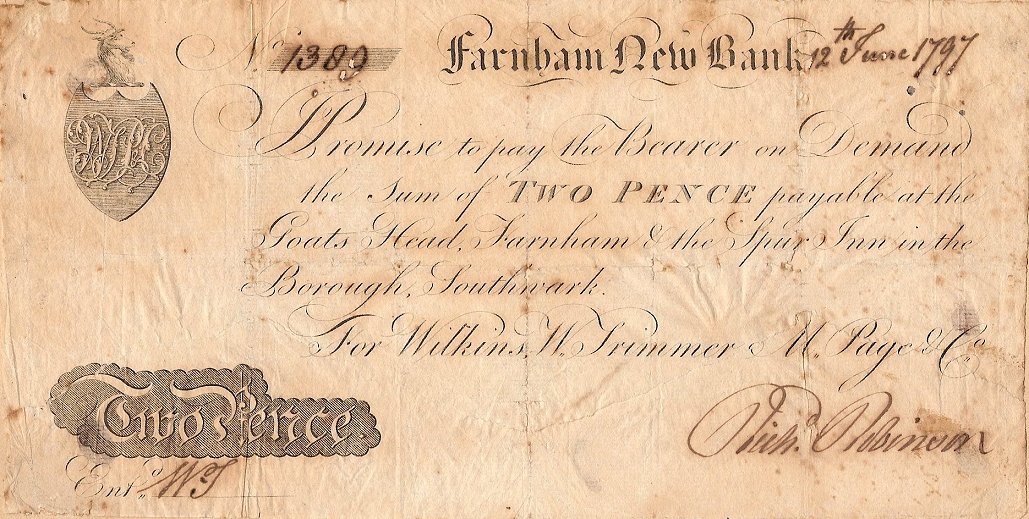 No 1389 Farnham New Bank 12th June 1797
I Promise to pay the Bearer on Demand
the Sum of TWO PENCE payable at the
Goats Head, Farnham & the Spur Inn in the
Borough, Southwark.
For Wilkins, W. Trimmer M. Page & Co.
Two Pence.
Richd. Robinson
Entd. WT